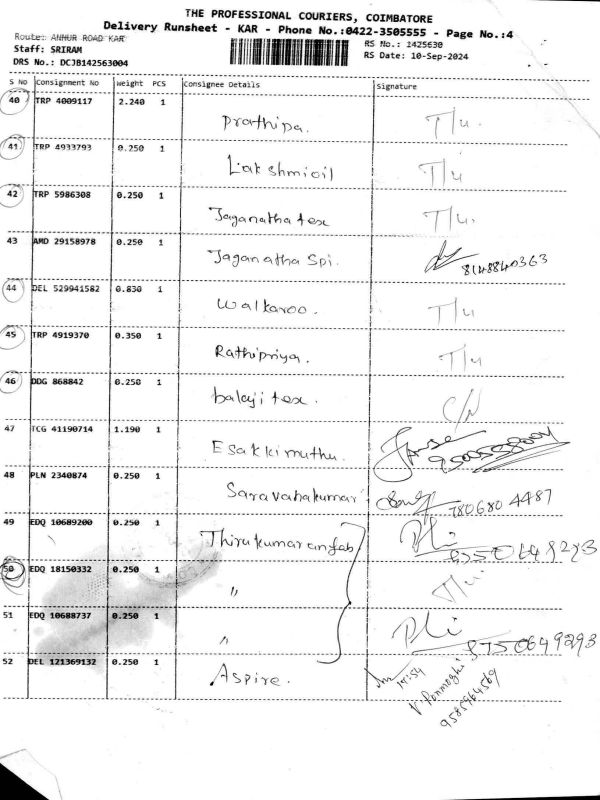 THE PROFESSIONAL COURIERS, COIMBATORE
Delivery Runsheet - KAR - Phone No.:0422-3505555 - Page No.:4
Route: ANHUR ROAD KAR
Staff: SRIRAM
DRS No.: DCJB142563004
RS No.: 1425630
RS Date: 10-Sep-2024
S No Consignment No Weight PCS Consignee Details Signature
40 TRP 4009117 2.240 1 Prathipa. T/u.
41 TRP 4933793 0.250 1 Lakshmioil T/u
42 TRP 5986308 0.250 1 Jaganatha tex T/u.
43 AMD 29158978 0.250 1 Jaganatha Spi. 8148840363
44 DEL 529941582 0.830 1 Walkaroo. T/u
45 TRP 4919370 0.350 1 Rathipriya. T/u
46 DDG 868842 0.250 1 balaji tex. C/N
47 TCG 41190714 1.190 1 Esakkimuthu.
48 PLN 2340874 0.250 1 Saravanakumar 780680 4487
49 EDQ 10689200 0.250 1 Thirukumaranfab
50 EDQ 18150332 0.250 1 " T/u
51 EDQ 10688737 0.250 1 " 8750649293
52 DEL 121369132 0.250 1 Aspire. 14:54
V. Ponmoghi
9585964569